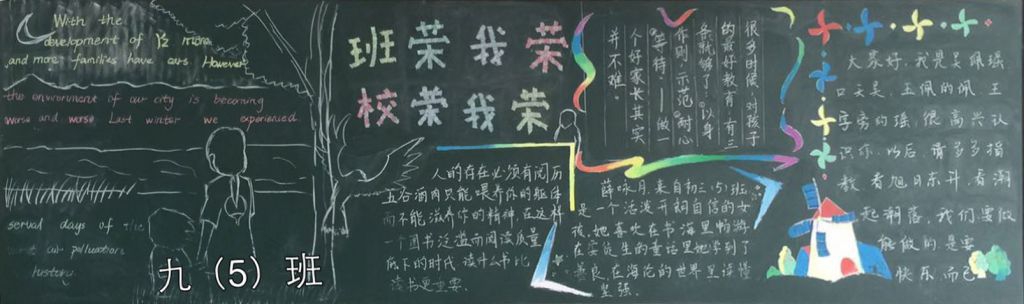 With the
development of
and more families have cars. However
the environment of our city is becoming
worse and worse. Last winter we experienced
serval days of the
air polluction
history.
九（5）班
班荣我荣
校荣我荣
很多时候，对孩子
的最好教育，有三
条就够了：以身
作则，示范，耐心
等待——做一
人好家长其实
并不难。
人的存在必须有阅历
五谷酒肉只能喂养你的躯体
而不能滋养你的精神，在这样
一个图书泛滥而阅读质量
低下的时代，读什么书比
读书更重要。
薛咏月，来自初三（5）班
是一个活泼开朗自信的女
孩，她喜欢在书海里畅游
在安徒生的童话里她学到了
善良，在海伦的世界里读懂
坚强。
大家好，我是吴佩瑶
口天吴，玉佩的佩，王
字旁的瑶，很高兴认
识你，以后请多多指
教，看旭日东升，看潮
起潮落，我们要做
能做的是要
快乐而已